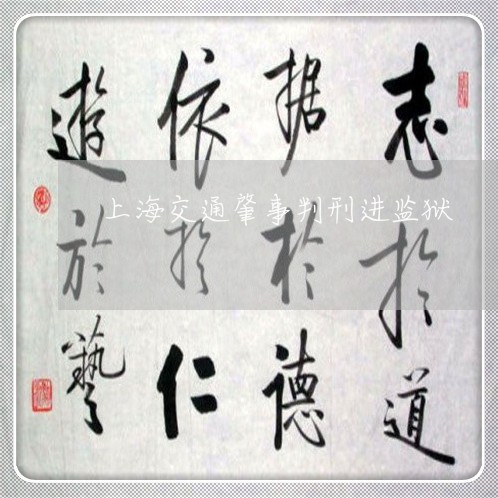 志於道
据於德
依於仁
遊於藝
上海交通肇事判刑进监狱